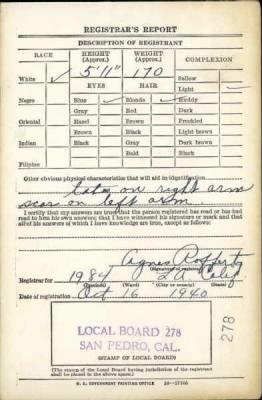 REGISTRAR'S REPORT
DESCRIPTION OF REGISTRANT
RACE HEIGHT (Approx.) WEIGHT (Approx.) COMPLEXION
White ✓ 5'11" 170 Sallow
EYES HAIR Light ✓
Negro Blue ✓ Blonde ✓ Ruddy
Gray Red Dark
Oriental Hazel Brown Freckled
Brown Black Light brown
Indian Black Gray Dark brown
Bald Black
Filipino
Other obvious physical characteristics that will aid in identification
tatoo on right arm
scar on left arm
I certify that my answers are true; that the person registered has read or has had
read to him his own answers; that I have witnessed his signature or mark and that
all of his answers of which I have knowledge are true, except as follows:
Agnes
(Signature of registrar)
Registrar for 1984 L.A. Calif
(Precinct) (Ward) (City or county) (State)
Date of registration Oct 16 1940
LOCAL BOARD 278
SAN PEDRO, CAL.
278
(STAMP OF LOCAL BOARD)
(The stamp of the Local Board having jurisdiction of the registrant
shall be placed in the above space.)
U. S. GOVERNMENT PRINTING OFFICE